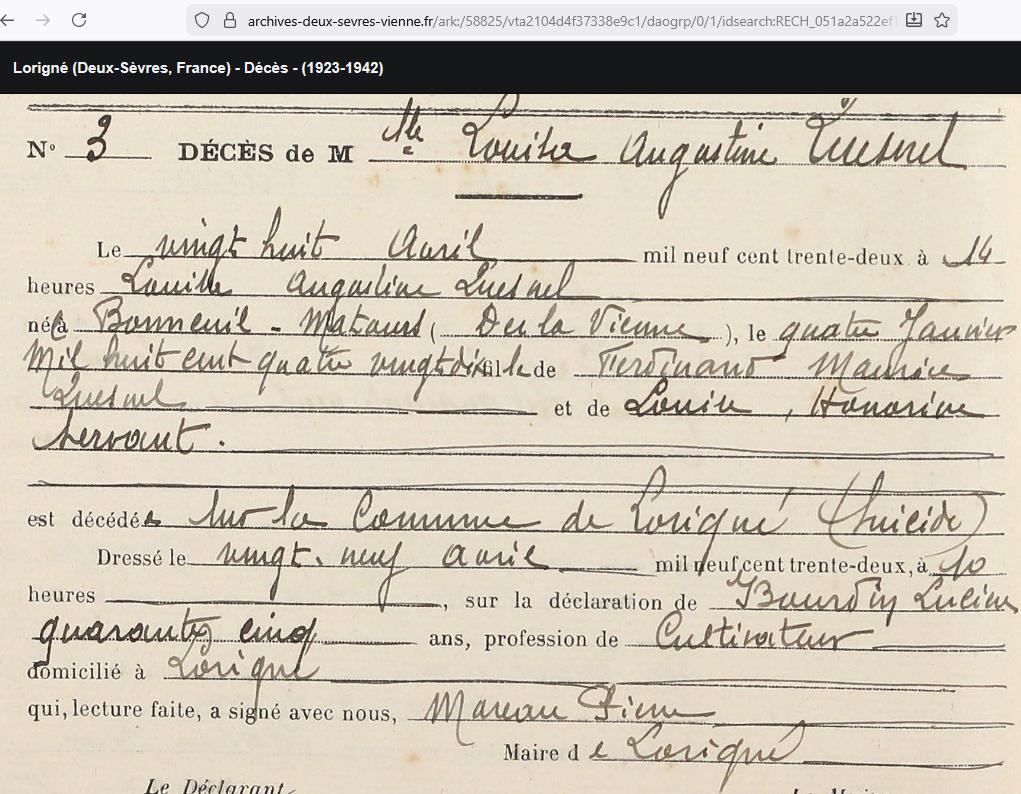 archives-deux-sevres-vienne.fr/ark:/58825/vta2104d4f37338e9c1/daogrp/0/1/idsearch:RECH_051a2a522ef
Lorigné (Deux-Sèvres, France) - Décès - (1923-1942)
N° 3 DÉCÈS de M lle Louise Augustine Quesnel
Le vingt huit Avril mil neuf cent trente-deux à 14
heures Louise Augustine Quesnel
née à Bonneuil - Matours ( De la Vienne ), le quatre Janvier
Mil huit cent quatre vingt dix fille de Ferdinand Maurice
Quesnel et de Louise, Honorine
Servant.
est décédée sur la Commune de Lorigné (Suicide)
Dressé le vingt-neuf avril mil neuf cent trente-deux, à 10
heures , sur la déclaration de Bourdin Lucien
quarante cinq ans, profession de Cultivateur
domicilié à Lorigné
qui, lecture faite, a signé avec nous, Mareau Pierre
Maire de Lorigné
Le Déclarant,